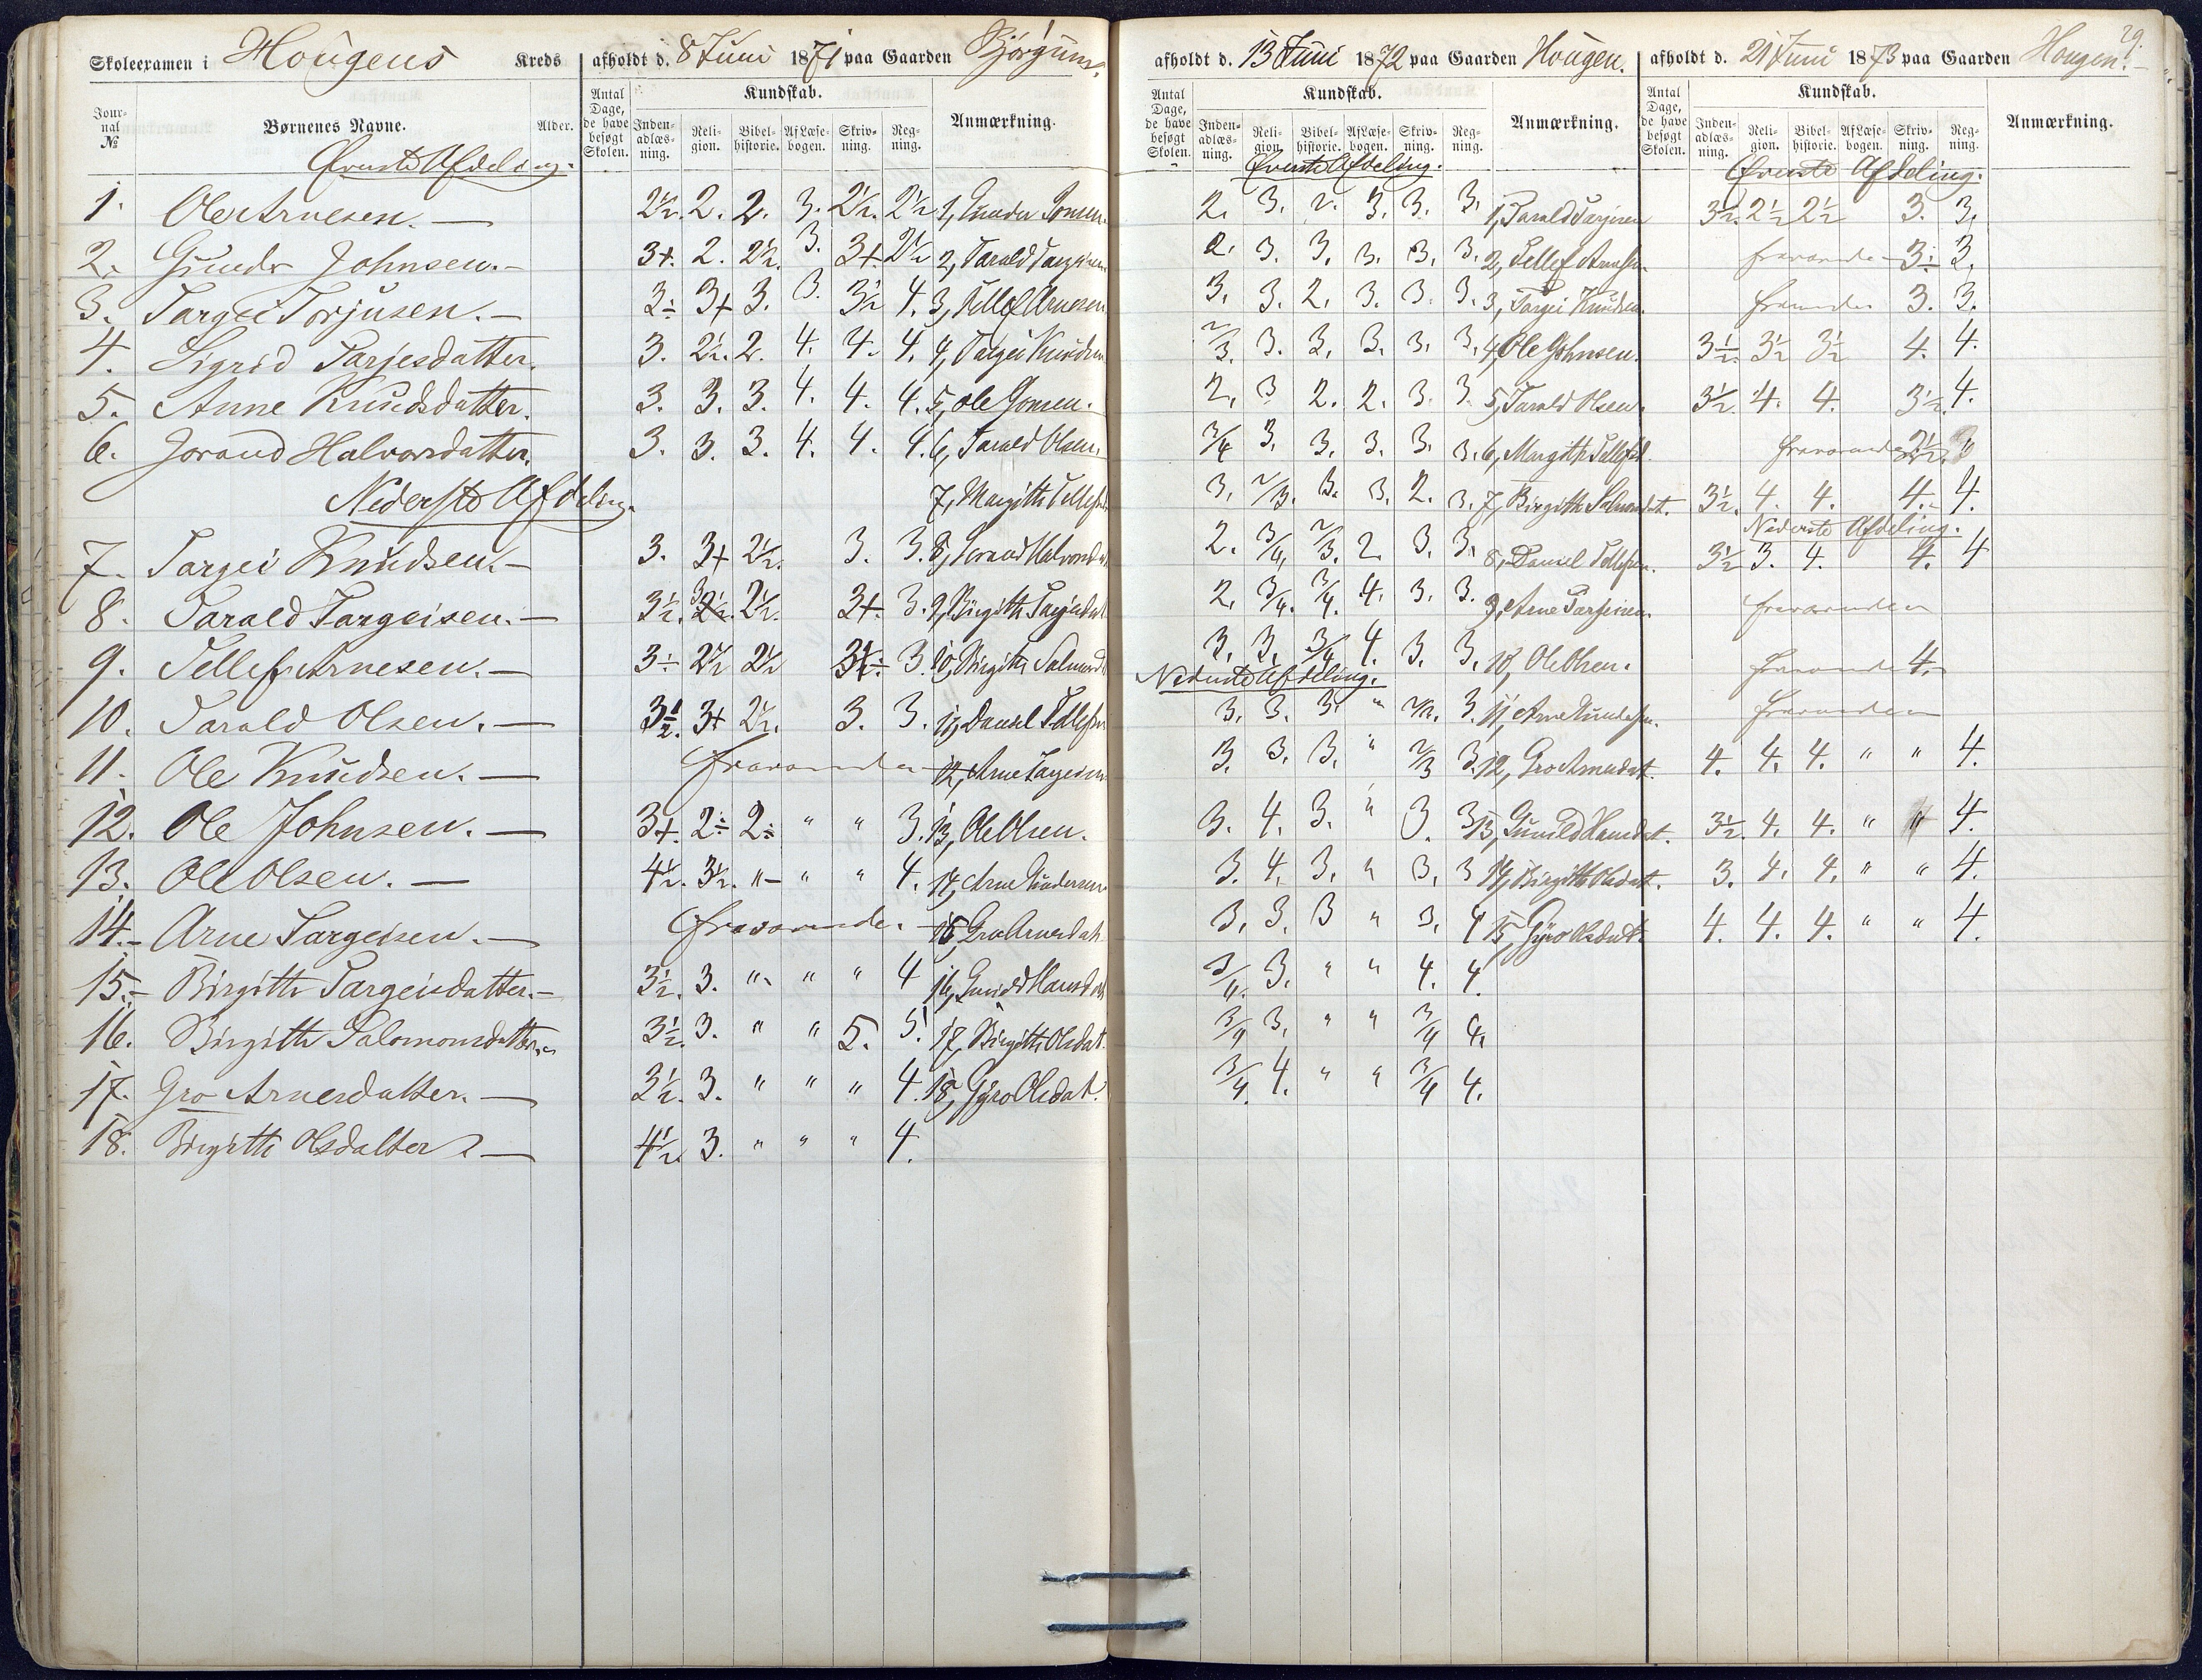 Skoleexamen i Hougens Kreds afholdt d. 8 Juni 1871 paa Gaarden Bjørgum.
Jour-nal № Børnenes Navne. Alder. Antal Dage, de have besøgt Skolen. Kundskab. Inden-adlæs-ning. Reli-gion. Bibel-historie. Af Læse-bogen. Skriv-ning. Reg-ning. Anmærkning.
Øverste Afdeling.
1. Ole Arnesen. — 2½. 2. 2. 3. 2½. 2½ 1, Gunder Jonsen
2. Gunder Johnsen. — 3+. 2. 2½. 3. 3+. 2½ 2, Tarald Targeisen
3. Targei Torjusen. — 3÷ 3+ 3. 3. 3½ 4. 3, Tellef Arnesen
4. Sigrid Tarjesdatter. 3. 2½. 2. 4. 4. 4. 4, Targei Knudsen
5. Anne Knudsdatter. 3. 3. 3. 4. 4. 4. 5, Ole Jonsen.
6. Jorand Halvorsdatter. 3. 3. 3. 4. 4. 4. 6, Tarald Olsen.
Nederste Afdeling. 7, Margith Tellefsd
7. Targei Knudsen. — 3. 3+ 2½. 3. 3. 8, Jorand Halvorsdat
8. Tarald Targeisen. — 3½. 3 2½. 2½. 3+. 3. 9, Birgith Targeisdat
9. Tellef Arnesen. — 3÷ 2½ 2½ 3÷ 3. 10, Birgith Salmonsd
10. Tarald Olsen. — 3½. 3+ 2½. 3. 3. 11, Daniel Tellefsen
11. Ole Knudsen. — fraværende 12, Arne Targeisen
12. Ole Johnsen. — 3+. 2÷ 2÷ " " 3. 13, Ole Olsen.
13. Ole Olsen. — 4½. 3½. " " " 4. 14, Arne Gundersen
14. Arne Targeisen. — fraværende. 15, Gro Arnesdat.
15. Birgithe Targeisdatter. — 3½. 3. " " " 4 16, Gunild Hansdat
16. Birgithe Salomonsdatter. 3½. 3. " " 5. 5. 17, Birgith Olsdat.
17. Gro Arnesdatter. — 3½. 3. " " " 4. 18, Gyro Olsdat.
18. Birgithe Olsdatter — 4½. 3. " " " 4.
afholdt d. 13 Juni 1872 paa Gaarden Hougen.
Antal Dage, de have besøgt Skolen. Kundskab. Inden-adlæs-ning. Reli-gion. Bibel-historie. Af Læse-bogen. Skriv-ning. Reg-ning. Anmærkning.
Øverste Afdeling.
2. 3. 2. 3. 3. 3. 1, Tarald Tarjeisen
2. 3. 3. 3. 3. 3. 2, Tellef Arnesen.
3. 3. 2. 3. 3. 3. 3, Targei Knudsen.
2/3. 3. 3. 3. 3. 3. 4, Ole Johnsen.
2. 3 2. 2. 3. 3. 5, Tarald Olsen.
3/4 3. 3. 3. 3. 3. 6, Margith Tellefsd.
3. 2/3. 3. 3. 2. 3. 7, Birgith Salmonsdat.
2. 3/4 2/3. 2. 3. 3. 8, Daniel Tellefsen.
2. 3/4. 3/4. 4. 3. 3. 9, Arne Tarjeisen.
3. 3. 3/4 4. 3. 3. 10, Ole Olsen.
Nederste Afdeling.
3. 3. 3. " 2/3. 3. 11, Arne Gundersen.
3. 3. 3. " 2/3 3. 12, Gro Arnesdat.
3. 4. 3. " 3. 3 13, Gunild Hansdat.
3. 4. 3. " 3. 3 14, Birgith Olsdat.
3. 3. 3 " 3. 4 15, Gyro Olsdat.
3/4. 3. " " 4. 4.
3/4 3. " " 3/4 4.
3/4. 4. " " 3/4 4.
29.
afholdt d. 21 Juni 1873 paa Gaarden Hougen. —
Antal Dage, de have besøgt Skolen. Kundskab. Inden-adlæs-ning. Reli-gion. Bibel-historie. Af Læse-bogen. Skriv-ning. Reg-ning. Anmærkning.
Øverste Afdeling.
3½. 2½ 2½ 3. 3.
fraværende 3÷ 3.
fraværende 3. 3.
3½. 3½ 3½ 4. 4.
3½. 4. 4. 3½. 4.
fraværende 3½.
3½. 4. 4. 4. 4.
Nederste Afdeling.
3½ 3. 4. 4. 4
fraværende
fraværende 4.
fraværende
4. 4. 4. " " 4.
3½. 4. 4. " " 4.
3. 4. 4. " " 4.
4. 4. 4. " " 4.